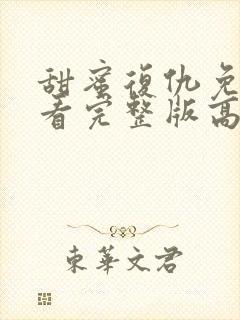 甜蜜復仇免
看完整版高
東華文君